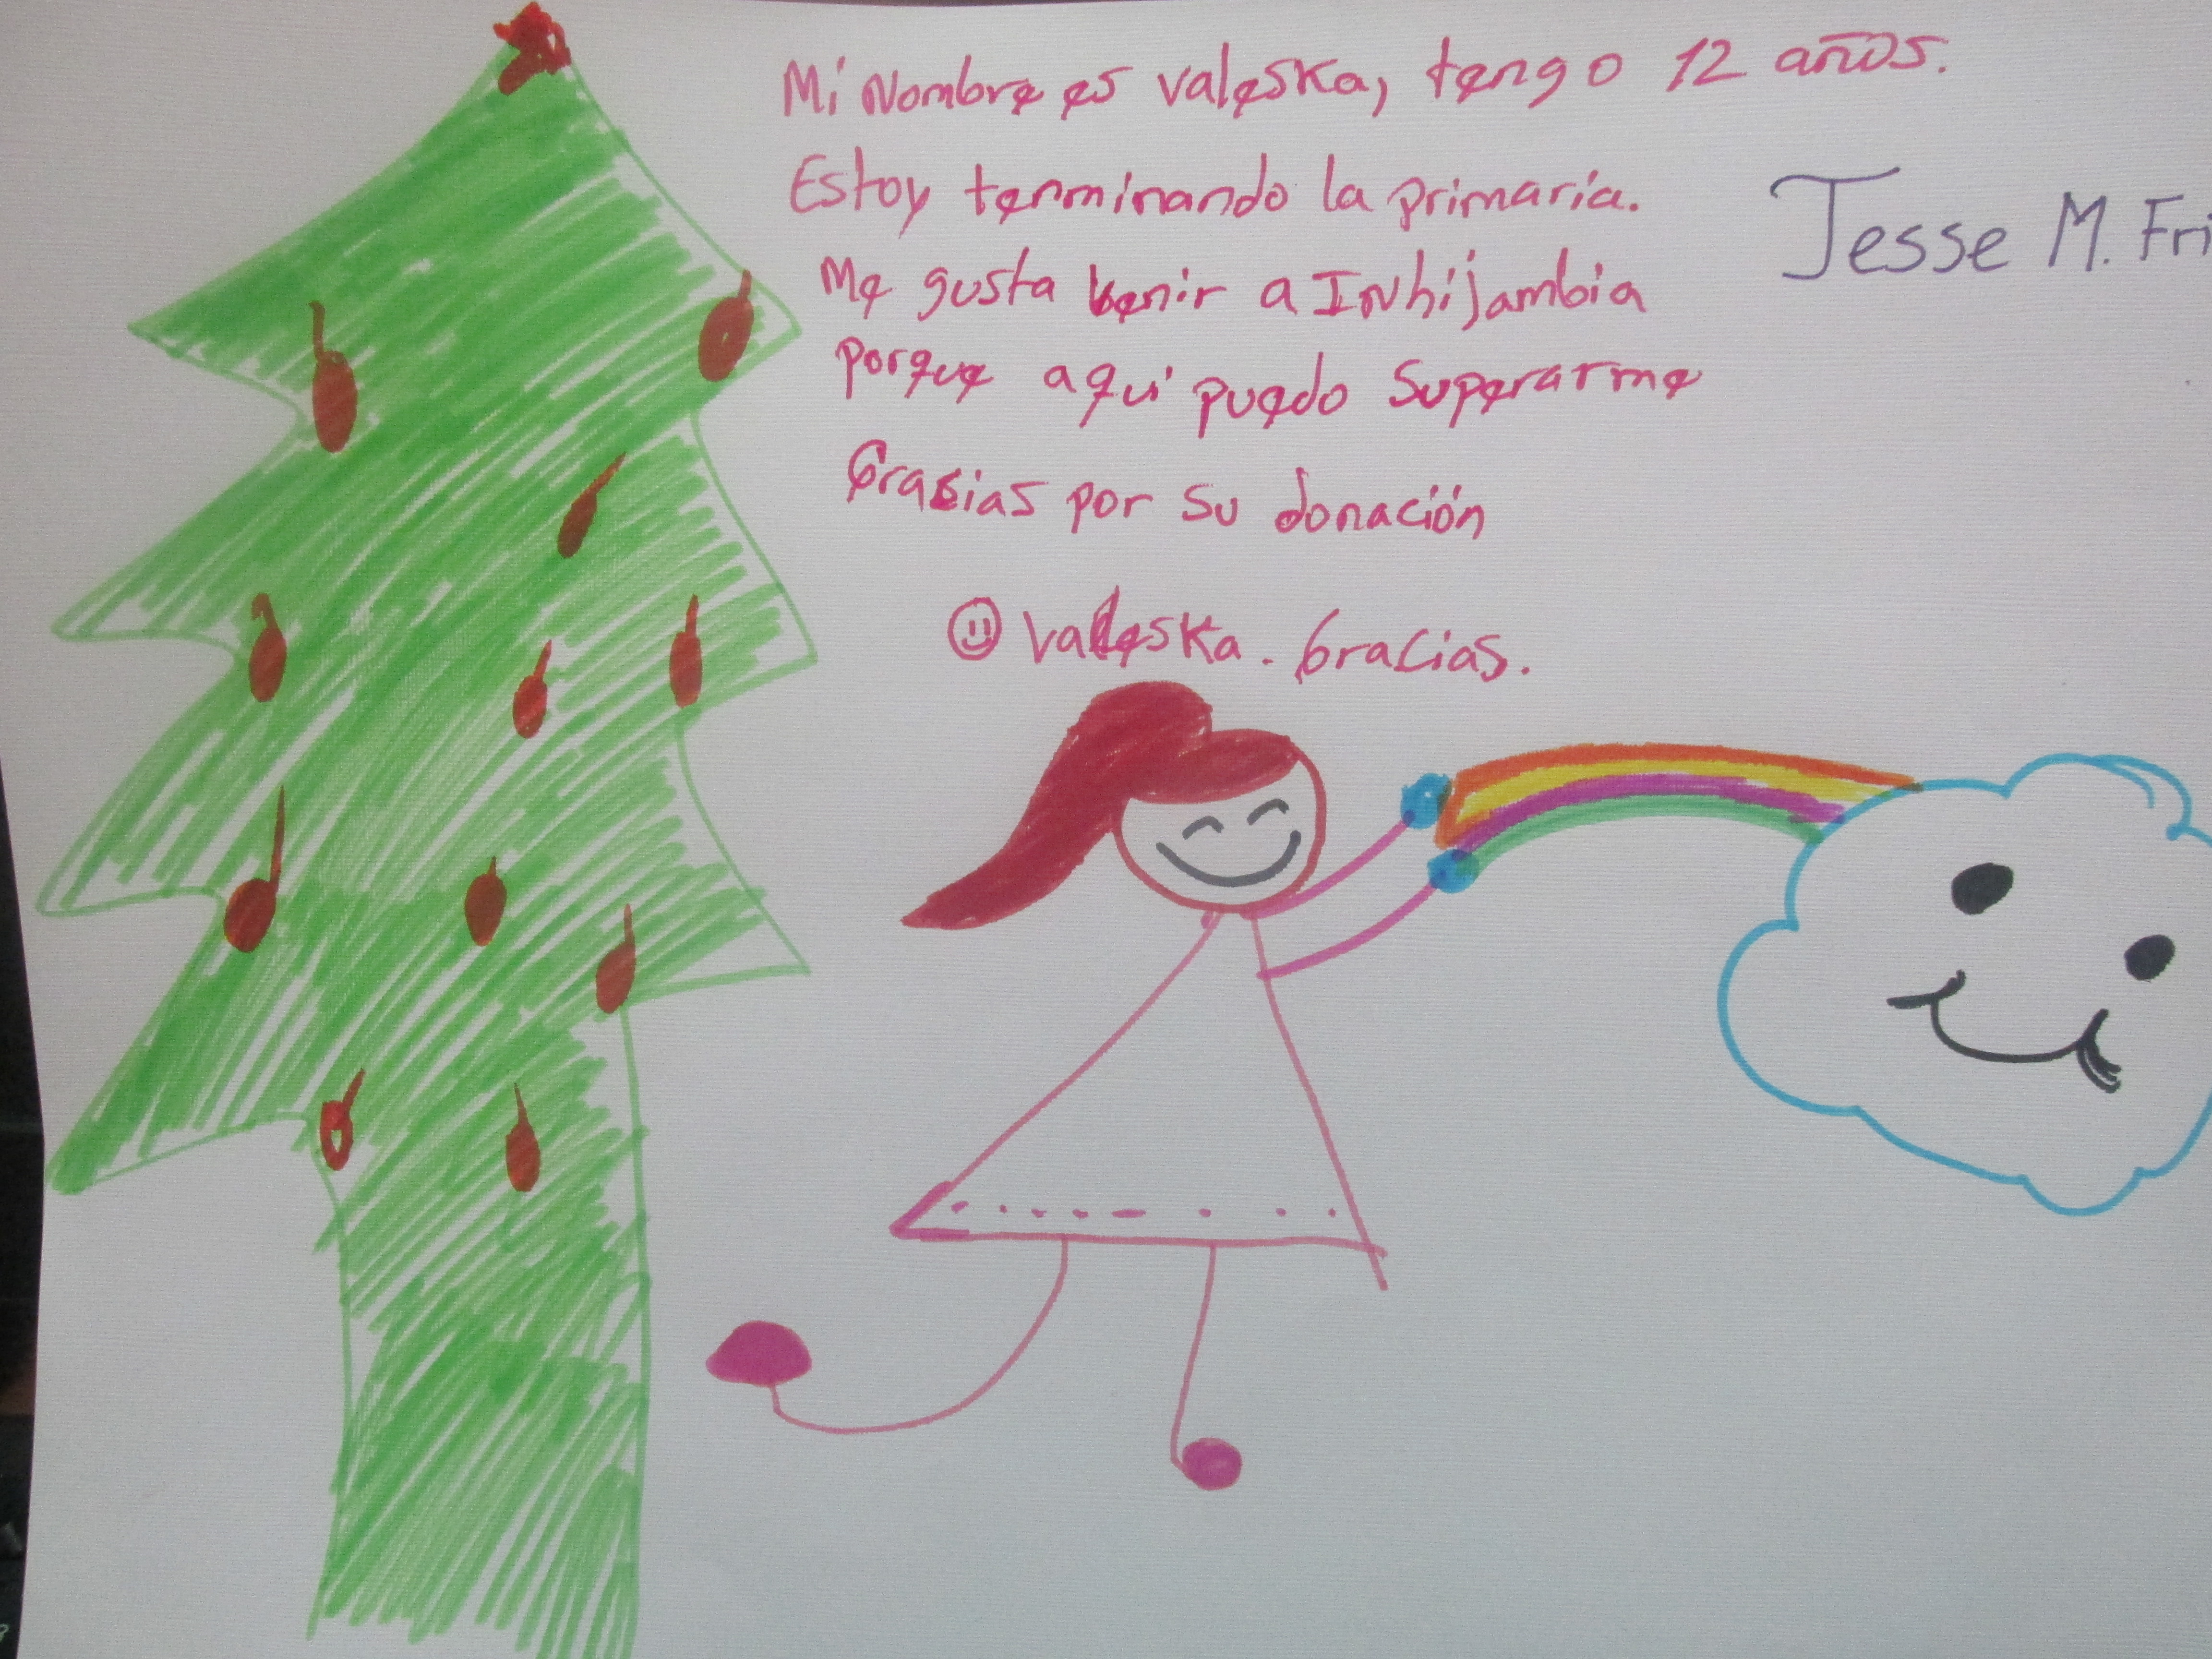 Mi Nombre es Valeska, tengo 12 años.
Estoy terminando la primaria.
Jesse M. Fri
Me gusta venir a INhijambia
porque aqui puedo Superarme
Gracias por su donación
Valeska. Gracias.